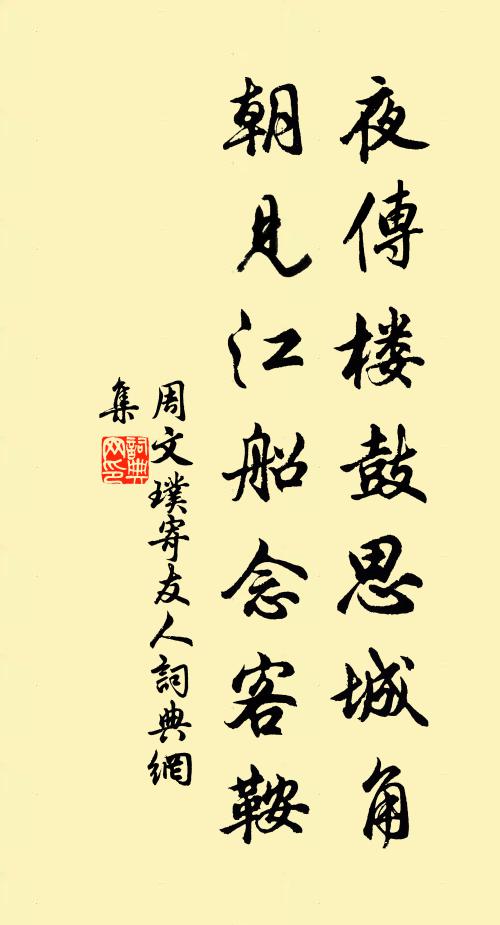 夜傳楼鼓思城角
朝見江船念客鞍
周文璞寄友人詞典網
集
詞典网印